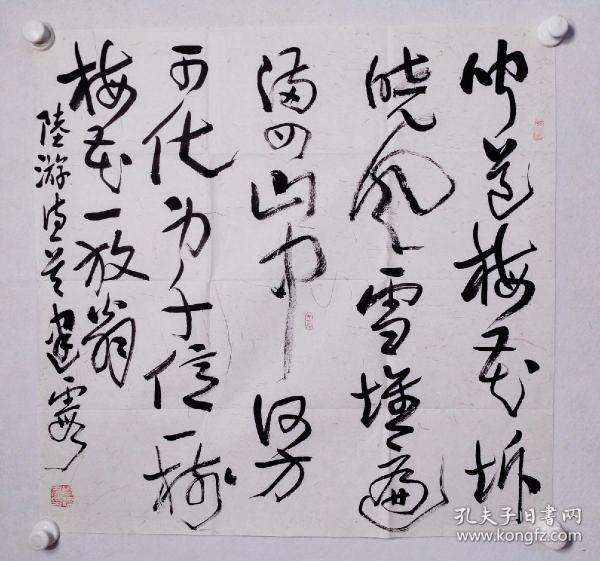 闻道梅花坼
晓风雪堆遍
满四山中何方
可化身千亿一树
梅花一放翁
陸游诗
孔夫子旧書网
www.kongfz.com